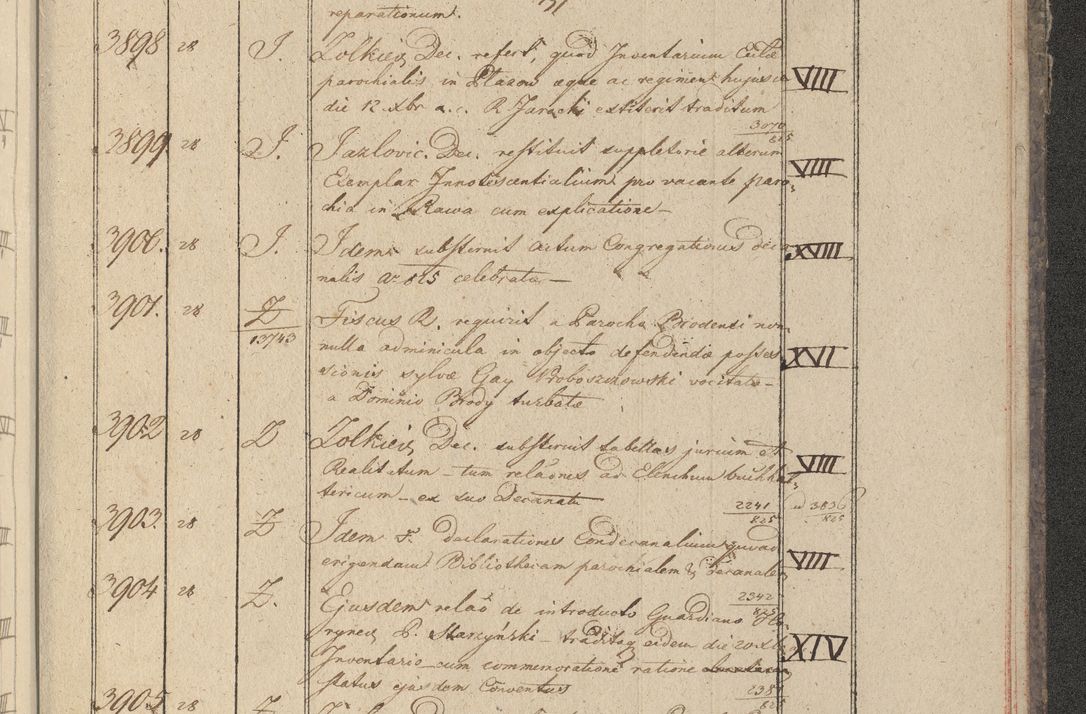 reparationum.
3898 28 J. Zolkiev. Dec. refert, quod Inventarium Eccłae
parochialis in Płazow aeque ac regimen hujus
die 12. Xbr a. c. R Jaracki extiterit traditum VIII
3070
825
3899 28 J. Jazlovic. Dec. restituit suppletorie alterum
Exemplar Innotescentialium pro vacante paro- VIII
chia in Rawa cum explicatione
3900. 28 J. Idem substernit actum Congregationis deca- XVIII
nalis ao 825 celebratae
3901. 28 Z Fiscus R. requirit a Parocho Brodensi non-
13743
nulla adminicula in objecto defendendae posses- XVI
sionis sylvae Gay Proboszczowski vocitatae
a Dominio Brody turbatae
3902 28 Z Zolkiev. Dec. substernit tabellas jurium et
Realitatum tum relaõnes ad Elenchum buchhal- VIII
tericum ex suo Decanatu
2241 ad 3836
825 825
3903. 28 Z Idem declarationes Condecanalium quoad
erigendam Bibliothecam parochialem & decanalem VIII
2342
825
3904 28 Z. Ejusdem relaõ de introducto Guardiano
P. Starzyński traditoq eidem die 20 Xbr XIV
Inventario cum commemoratione ratione
status ejusdem Conventus
2381
825
3905 28 Z